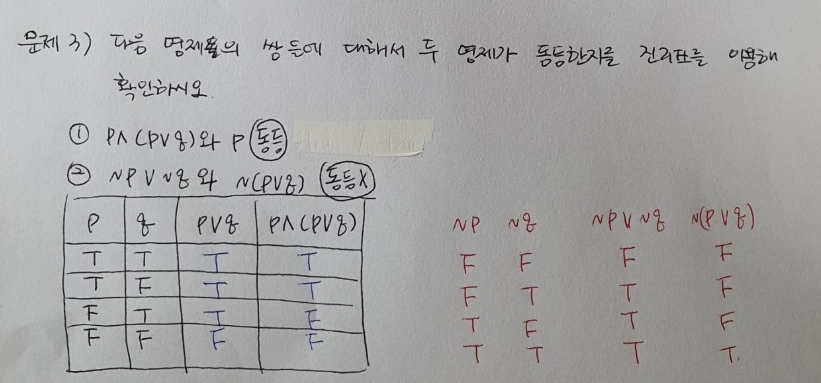 문제 3) 다음 명제들의 쌍들에 대해서 두 명제가 동등한지를 진리표를 이용해
확인하시오.
① P∧(P∨q)와 P 동등
② ~P∨~q와 ~(P∨q) 동등X
P q P∨q P∧(P∨q) ~P ~q ~P∨~q ~(P∨q)
T T T T F F F F
T F T T F T T F
F T T F T F T F
F F F F T T T T.